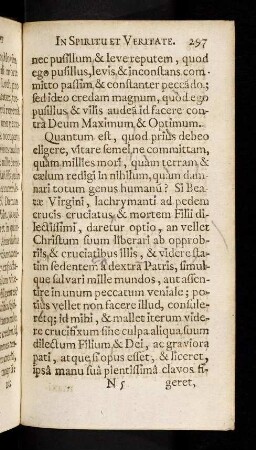 IN SPIRITU ET VERITATE. 297
nec pusillum, & leve reputem, quod
ego pusillus, levis, & inconstans com
mitto passim, & constanter pecco do;
sed ideo credam magnum, quod ego
pusillus, & vilis audeā id facere con-
trà Deum Maximum, & Optimum.
Quantum est, quod priùs debeo
eligere, vitare semel, ne committam,
quàm millies mori, quàm terram, &
cælum redigi in nihilum, quàm da-
mnari totum genus humanū? Si Bea-
tæ Virgini, lachrymanti ad pedem
crucis cruciatus, & mortem Filii di-
lectissimi, daretur optio, an vellet
Christum suum liberari ab opprob-
riis, & cruciatibus illis, & videre sta-
tim sedentem à dextrâ Patris, simúl-
que salvari mille mundos, aut assen-
tire in unum peccatum veniale; po-
tiùs vellet non facere illud, consule-
rétq; id mihi, & mallet iterum vide-
re crucifixum sine culpa aliqua, suum
dilectum Filium, & Dei, ac graviora
pati, atque, si opus esset, & liceret,
ipsâ manu suâ pientissimâ clavos fi-
N 5 geret,